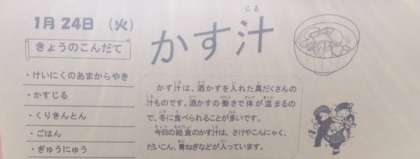 1月24日 （火）
きょうのこんだて
・けいにくのあまからやき
・かすじる
・くりきんとん
・ごはん
・ぎゅうにゅう
かす汁
じる
かす汁は、酒かすを入れた具だくさんの
汁ものです。酒かすの働きで体が温まるの
で、冬に食べられることが多いです。
今日の給食のかす汁は、さけやこんにゃく、
だいこん、青ねぎなどが入っています。